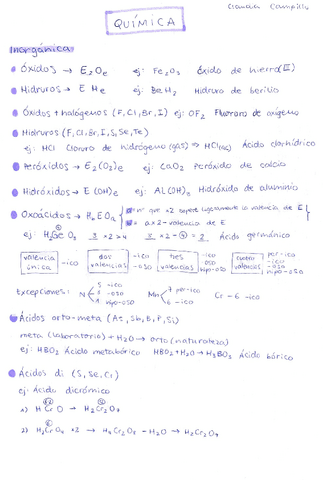 Claudia Campillo
QUÍMICA
Inorgánica
Óxidos → E₂Oₑ ej: Fe₂O₃ Óxido de hierro(III)
Hidruros → E Hₑ ej: BeH₂ Hidruro de berilio
Óxidos + halógenos (F, Cl, Br, I) ej: OF₂ Fluoruro de oxígeno
Hidruros (F, Cl, Br, I, S, Se, Te)
ej: HCl Cloruro de hidrógeno (gas) → HCl(ac) Ácido clorhídrico
Peróxidos → E₂(O₂)ₑ ej: CaO₂ Peróxido de calcio
Hidróxidos → E(OH)ₑ ej: AL(OH)₃ Hidróxido de aluminio
Oxoácidos → HₙEOₐ nº que ×2 supere ligeramente la valencia de E
= a×2 - valencia de E
ej: H₂GeO₃ 3 ×2 > 4 3 ×2 - 4 = 2 Ácido germánico
valencia única -ico dos valencias -ico -oso tres valencias -ico -oso hipo-oso cuatro valencias per-ico -ico -oso hipo-oso
Excepciones: N 5 -ico 3 -oso 1 hipo-oso Mn 7 per-ico 6 -ico Cr - 6 -ico
Ácidos orto-meta (As, Sb, B, P, Si)
meta (laboratorio) + H₂O → orto (naturaleza)
ej: HBO₂ Ácido metabórico HBO₂ + H₂O → H₃BO₃ Ácido bórico
Ácidos di (S, Se, Cr)
ej: Ácido dicrómico
1) H Cr O → H₂Cr₂O₇
2) H₂CrO₄ ×2 → H₄Cr₂O₈ - H₂O → H₂Cr₂O₇